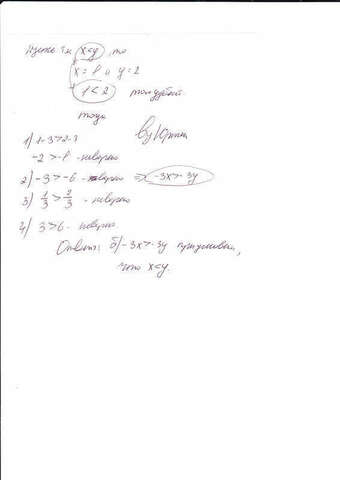 x<y, то
x = 1 и y = 2
1 < 2
тогда
1) 1-3>2-3
-2 > -1 - неверно
2) -3 > -6 - верно => -3x>-3y
3) 1/3 > 2/3 - неверно
4) 3>6 - неверно
Ответ: б) -3x>-3y
что x<y.